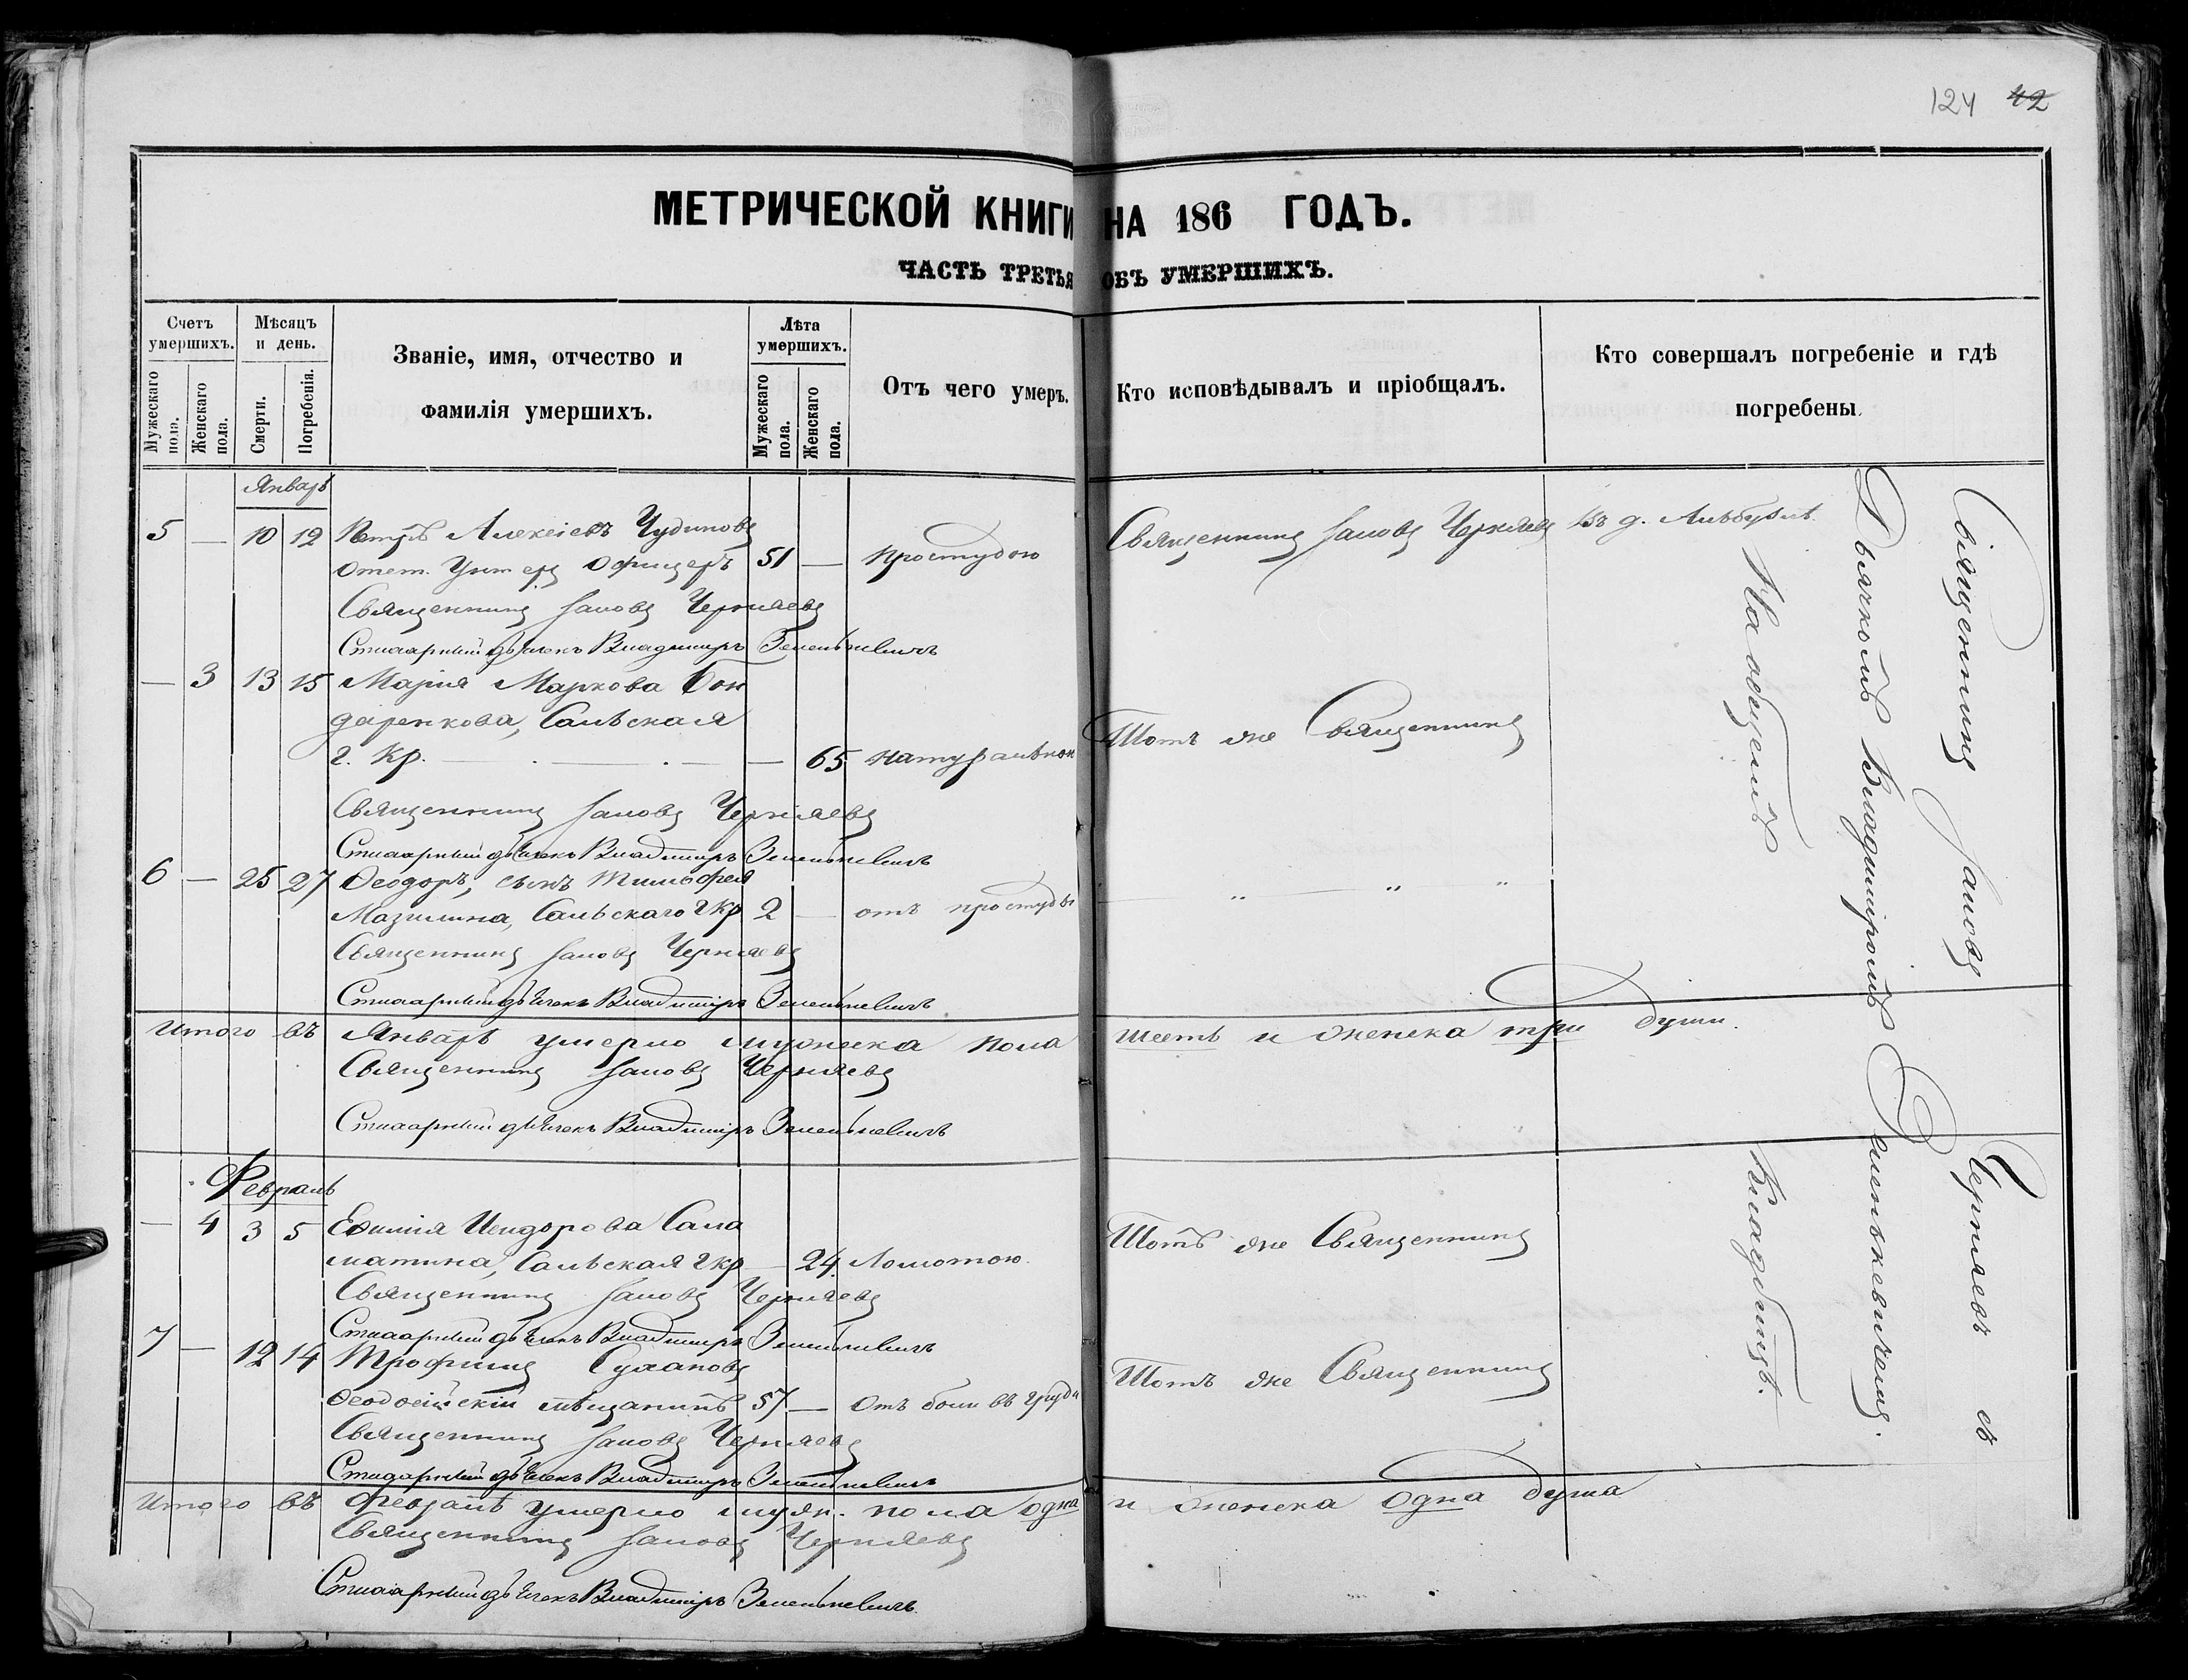 124 42
МЕТРИЧЕСКОЙ КНИГИ НА 186 ГОДЪ.
ЧАСТЬ ТРЕТЬЯ ОБЪ УМЕРШИХЪ.
Счетъ умершихъ.
Мужескаго пола.
Женскаго пола.
Мѣсяцъ и день.
Смерти.
Погребенія.
Званіе, имя, отчество и
фамилія умершихъ.
Лѣта умершихъ.
Мужескаго пола.
Женскаго пола.
Отъ чего умеръ.
Кто исповѣдывалъ и пріобщалъ.
Кто совершалъ погребеніе и гдѣ
погребены.
Январь
5 — 10 12 Петръ Алексіевъ Чудиновъ
Отст. Унтеръ Офицеръ 51 — простудою Священникъ Іаковъ Черняевъ Въ д.
Священникъ Іаковъ Черняевъ
Стихарный дьячекъ Владимиръ Зеленькевичъ
— 3 13 15 Марія Маркова Бон
даренкова, Сальская
г. Кр. — 65 натуральною Тотъ же Священникъ
Священникъ Іаковъ Черняевъ
Стихарный дьячекъ Владимиръ Зеленькевичъ
6 — 25 27 Ѳеодоръ, сынъ Тимоѳея
Мазилина, Сальскаго г кр 2 — отъ простуды — „ — „ „
Священникъ Іаковъ Черняевъ
Стихарный дьячекъ Владимиръ Зеленькевичъ
Итого въ Январѣ умерло мужеска пола шесть и женска три души.
Священникъ Іаковъ Черняевъ
Стихарный дьячекъ Владиміръ Зеленькевичъ
Февраль
— 4 3 5 Евѳимія Исидорова Сала
матина, Сальская г кр — 24 Ломотою. Тотъ же Священникъ
Священникъ Іаковъ Черняевъ
Стихарный дьячекъ Владимиръ Зеленькевичъ
7 — 12 14 Трофимъ Сухановъ
Ѳеодосійскій мѣщанинъ 57 — Отъ боли въ груди Тотъ же Священникъ
Священникъ Іаковъ Черняевъ
Стихарный дьячекъ Владимиръ Зеленькевичъ
Итого въ Февралѣ умерло муж. пола одна и женска одна душа
Священникъ Іаковъ Черняевъ
Стихарный дьячекъ Владиміръ Зеленькевичъ.
Священникъ Іаковъ Черняевъ съ
Дьячкомъ Владимиромъ Зеленькевичемъ.
На общемъ кладбищѣ.